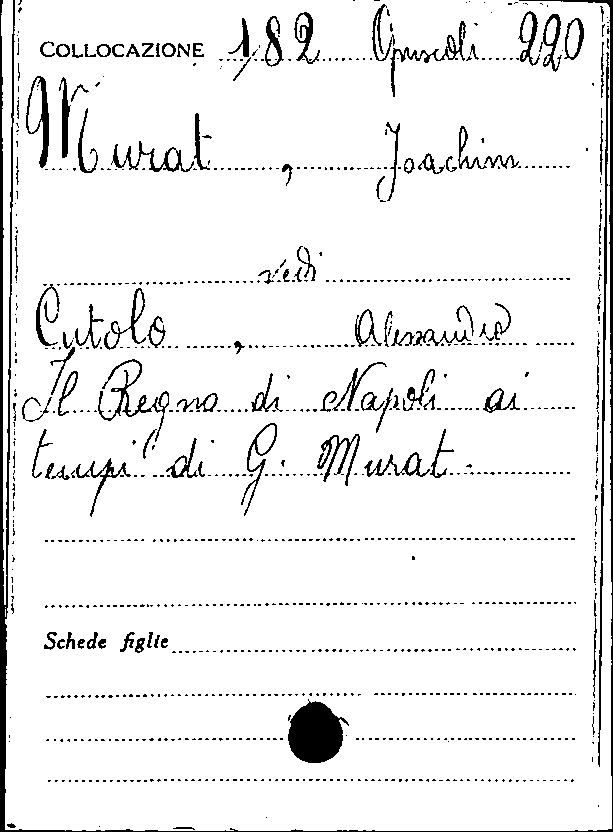 COLLOCAZIONE 182 Opuscoli 220
Murat, Joachim
vedi
Cutolo, Alessandro
Il Regno di Napoli ai
tempi di G. Murat.
Schede figlie